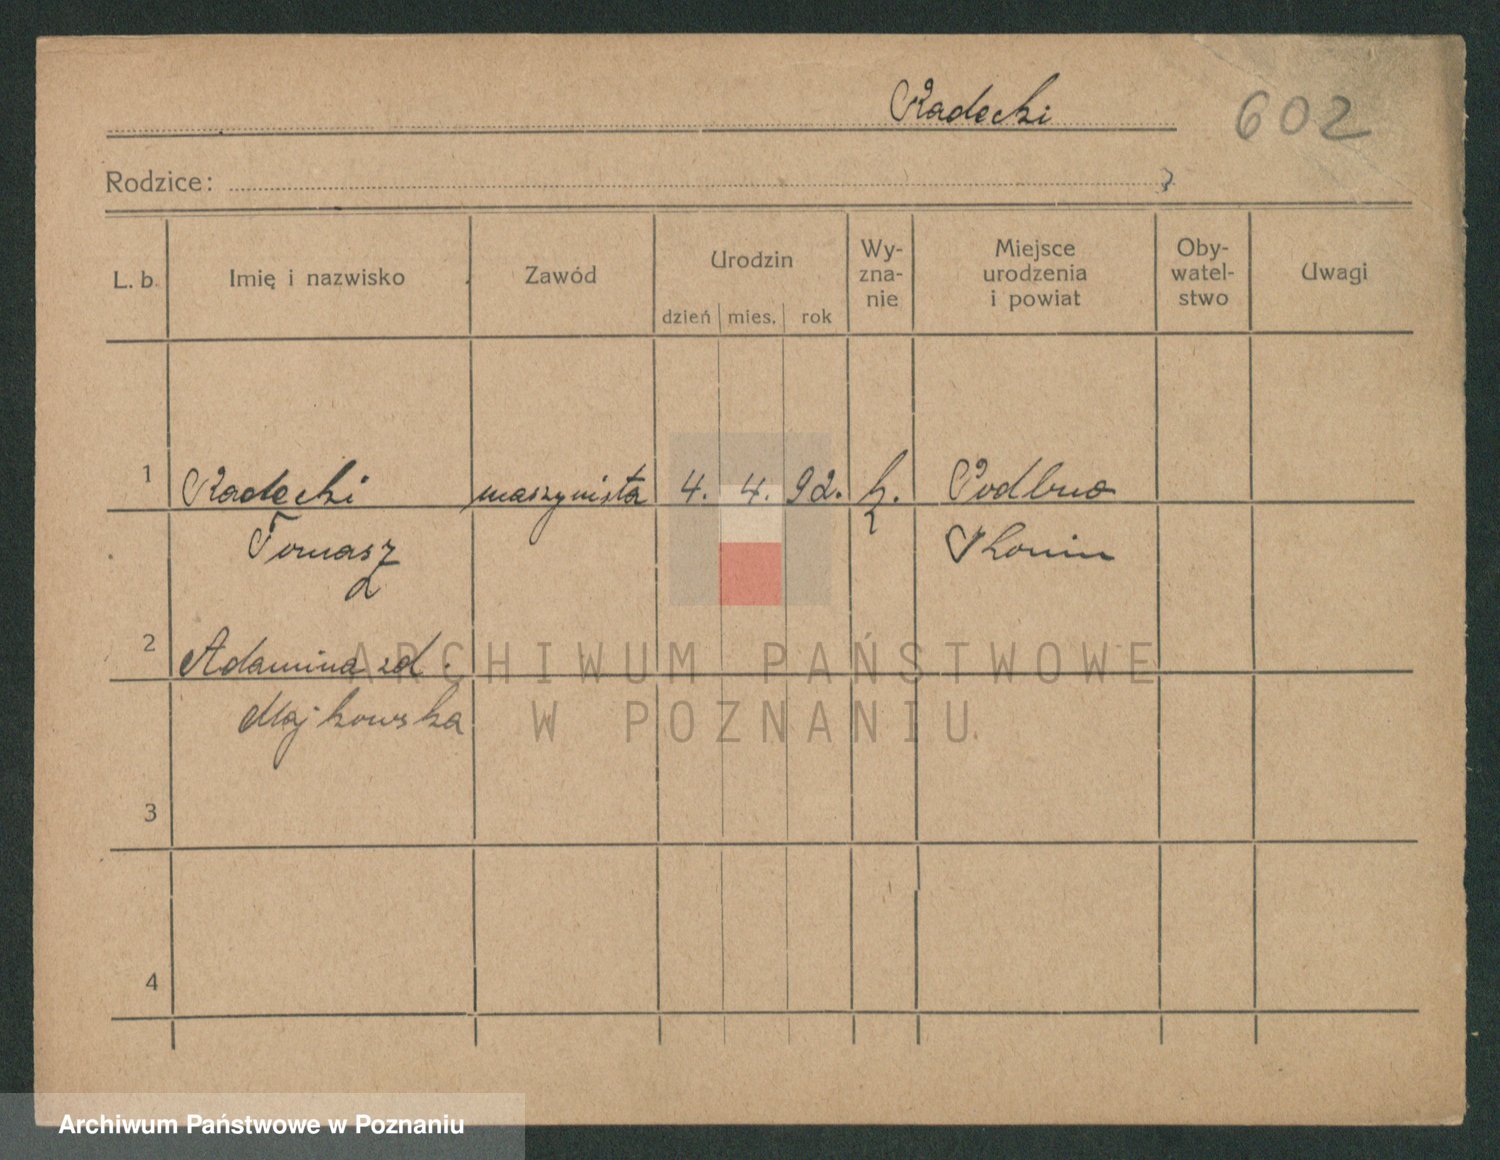 Radecki
602
Rodzice:
L. b.
Imię i nazwisko
Zawód
Urodzin
dzień mies. rok
Wy-
zna-
nie
Miejsce
urodzenia
i powiat
Oby-
watel-
stwo
Uwagi
1 Radecki maszynista 4. 4. 92. k.
Tomasz
2 Adamina zd.
Majkowska
3
4
ARCHIWUM PAŃSTWOWE
W POZNANIU
Archiwum Państwowe w Poznaniu